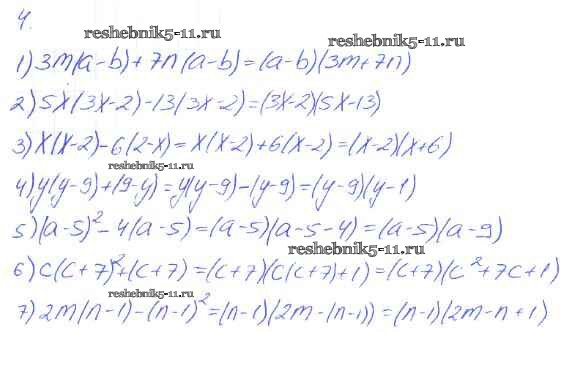 4.
reshebnik5-11.ru
reshebnik5-11.ru
1) 3m(a-b)+7n(a-b)=(a-b)(3m+7n)
2) 5x(3x-2)-13(3x-2)=(3x-2)(5x-13)
3) x(x-2)-6(2-x)=x(x-2)+6(x-2)=(x-2)(x+6)
reshebnik5-11.ru
4) y(y-9)+(9-y)=y(y-9)-(y-9)=(y-9)(y-1)
5) (a-5)²-4(a-5)=(a-5)(a-5-4)=(a-5)(a-9)
reshebnik5-11.ru
6) c(c+7)²+(c+7)=(c+7)(c(c+7)+1)=(c+7)(c²+7c+1)
reshebnik5-11.ru
7) 2m(n-1)-(n-1)²=(n-1)(2m-(n-1))=(n-1)(2m-n+1)